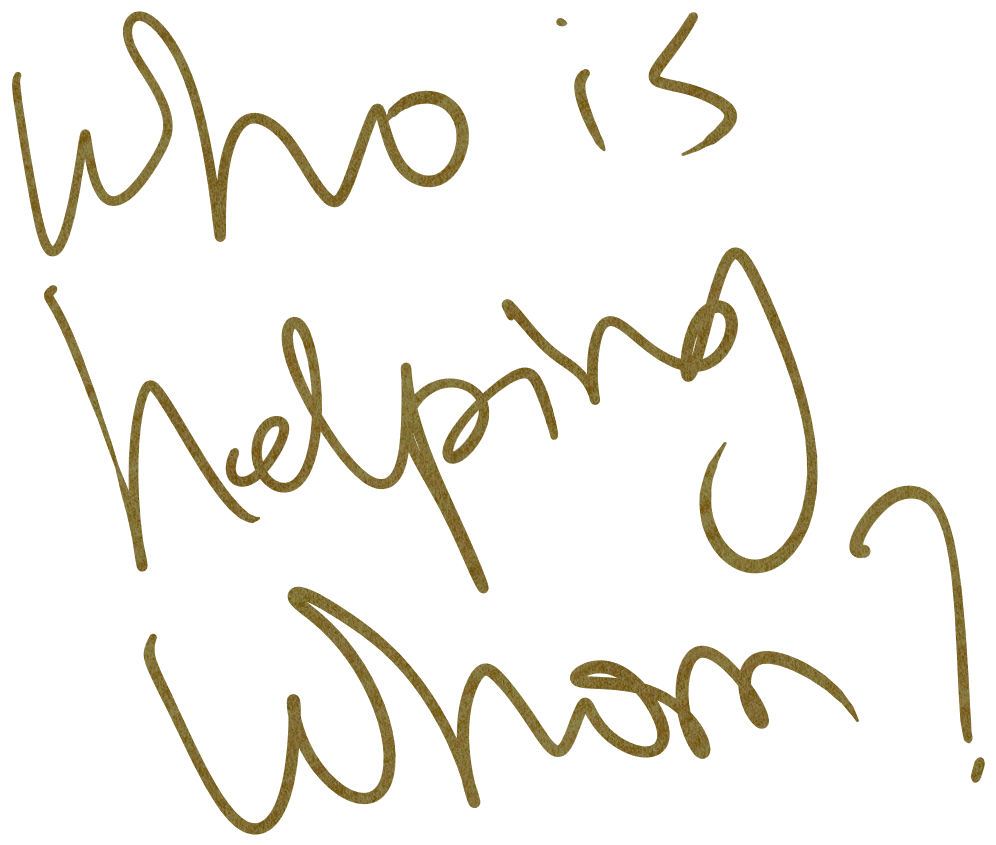 Who is
helping
Whom?